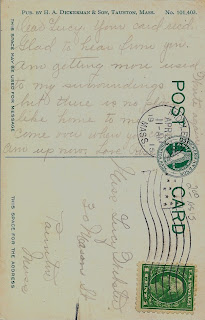 PUB. BY H. A. DICKERMAN & SON, TAUNTON, MASS. No. 101,403.
Dear Lucy. Your card recd.
Glad to hear from you.
Am getting more used
to my surroundings
but there is no place
like home to me
come over when
up new love
THIS SPACE MAY BE USED FOR MESSAGE
POST
CARD
MASS.
Miss Lucy
20 Mason St.
Taunton
Mass
THIS SPACE FOR THE ADDRESS